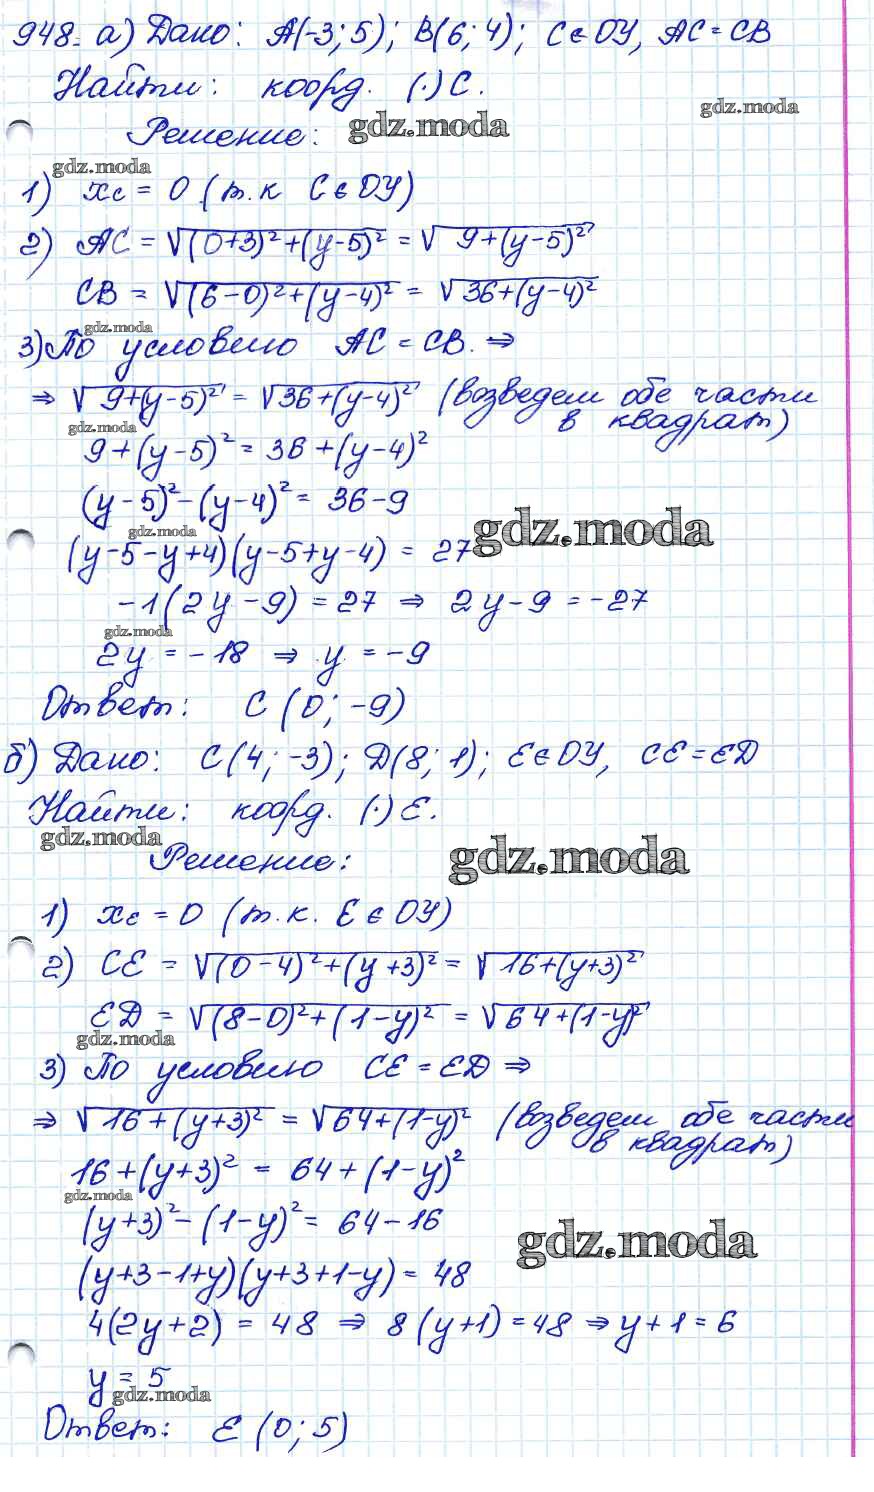 948. а) Дано: A(-3; 5); B(6; 4); C∈OY, AC = CB
Найти: коорд. (·) C.
gdz.moda
Решение: gdz.moda
gdz.moda
1) xc = 0 (т.к C∈OY)
2) AC = √(0+3)²+(y-5)² = √9+(y-5)²
CB = √(6-0)²+(y-4)² = √36+(y-4)²
gdz.moda
3) По условию AC = CB. ⇒
⇒ √9+(y-5)² = √36+(y-4)² (возведем обе части
в квадрат)
gdz.moda
9+(y-5)² = 36+(y-4)²
(y-5)²-(y-4)² = 36-9
gdz.moda gdz.moda
(y-5-y+4)(y-5+y-4) = 27
-1(2y-9) = 27 ⇒ 2y-9 = -27
gdz.moda
2y = -18 ⇒ y = -9
Ответ: C (0; -9)
б) Дано: C(4; -3); D(8; 1); E∈OY, CE = ED
Найти: коорд. (·) E.
gdz.moda
Решение: gdz.moda
1) xE = 0 (т.к. E∈OY)
2) CE = √(0-4)²+(y+3)² = √16+(y+3)²
ED = √(8-0)²+(1-y)² = √64+(1-y)²
gdz.moda
3) По условию CE = ED ⇒
⇒ √16+(y+3)² = √64+(1-y)² (возведем обе части
в квадрат)
16+(y+3)² = 64+(1-y)²
gdz.moda
(y+3)²-(1-y)² = 64-16
gdz.moda
(y+3-1+y)(y+3+1-y) = 48
4(2y+2) = 48 ⇒ 8(y+1) = 48 ⇒ y+1 = 6
y = 5
gdz.moda
Ответ: E (0; 5)